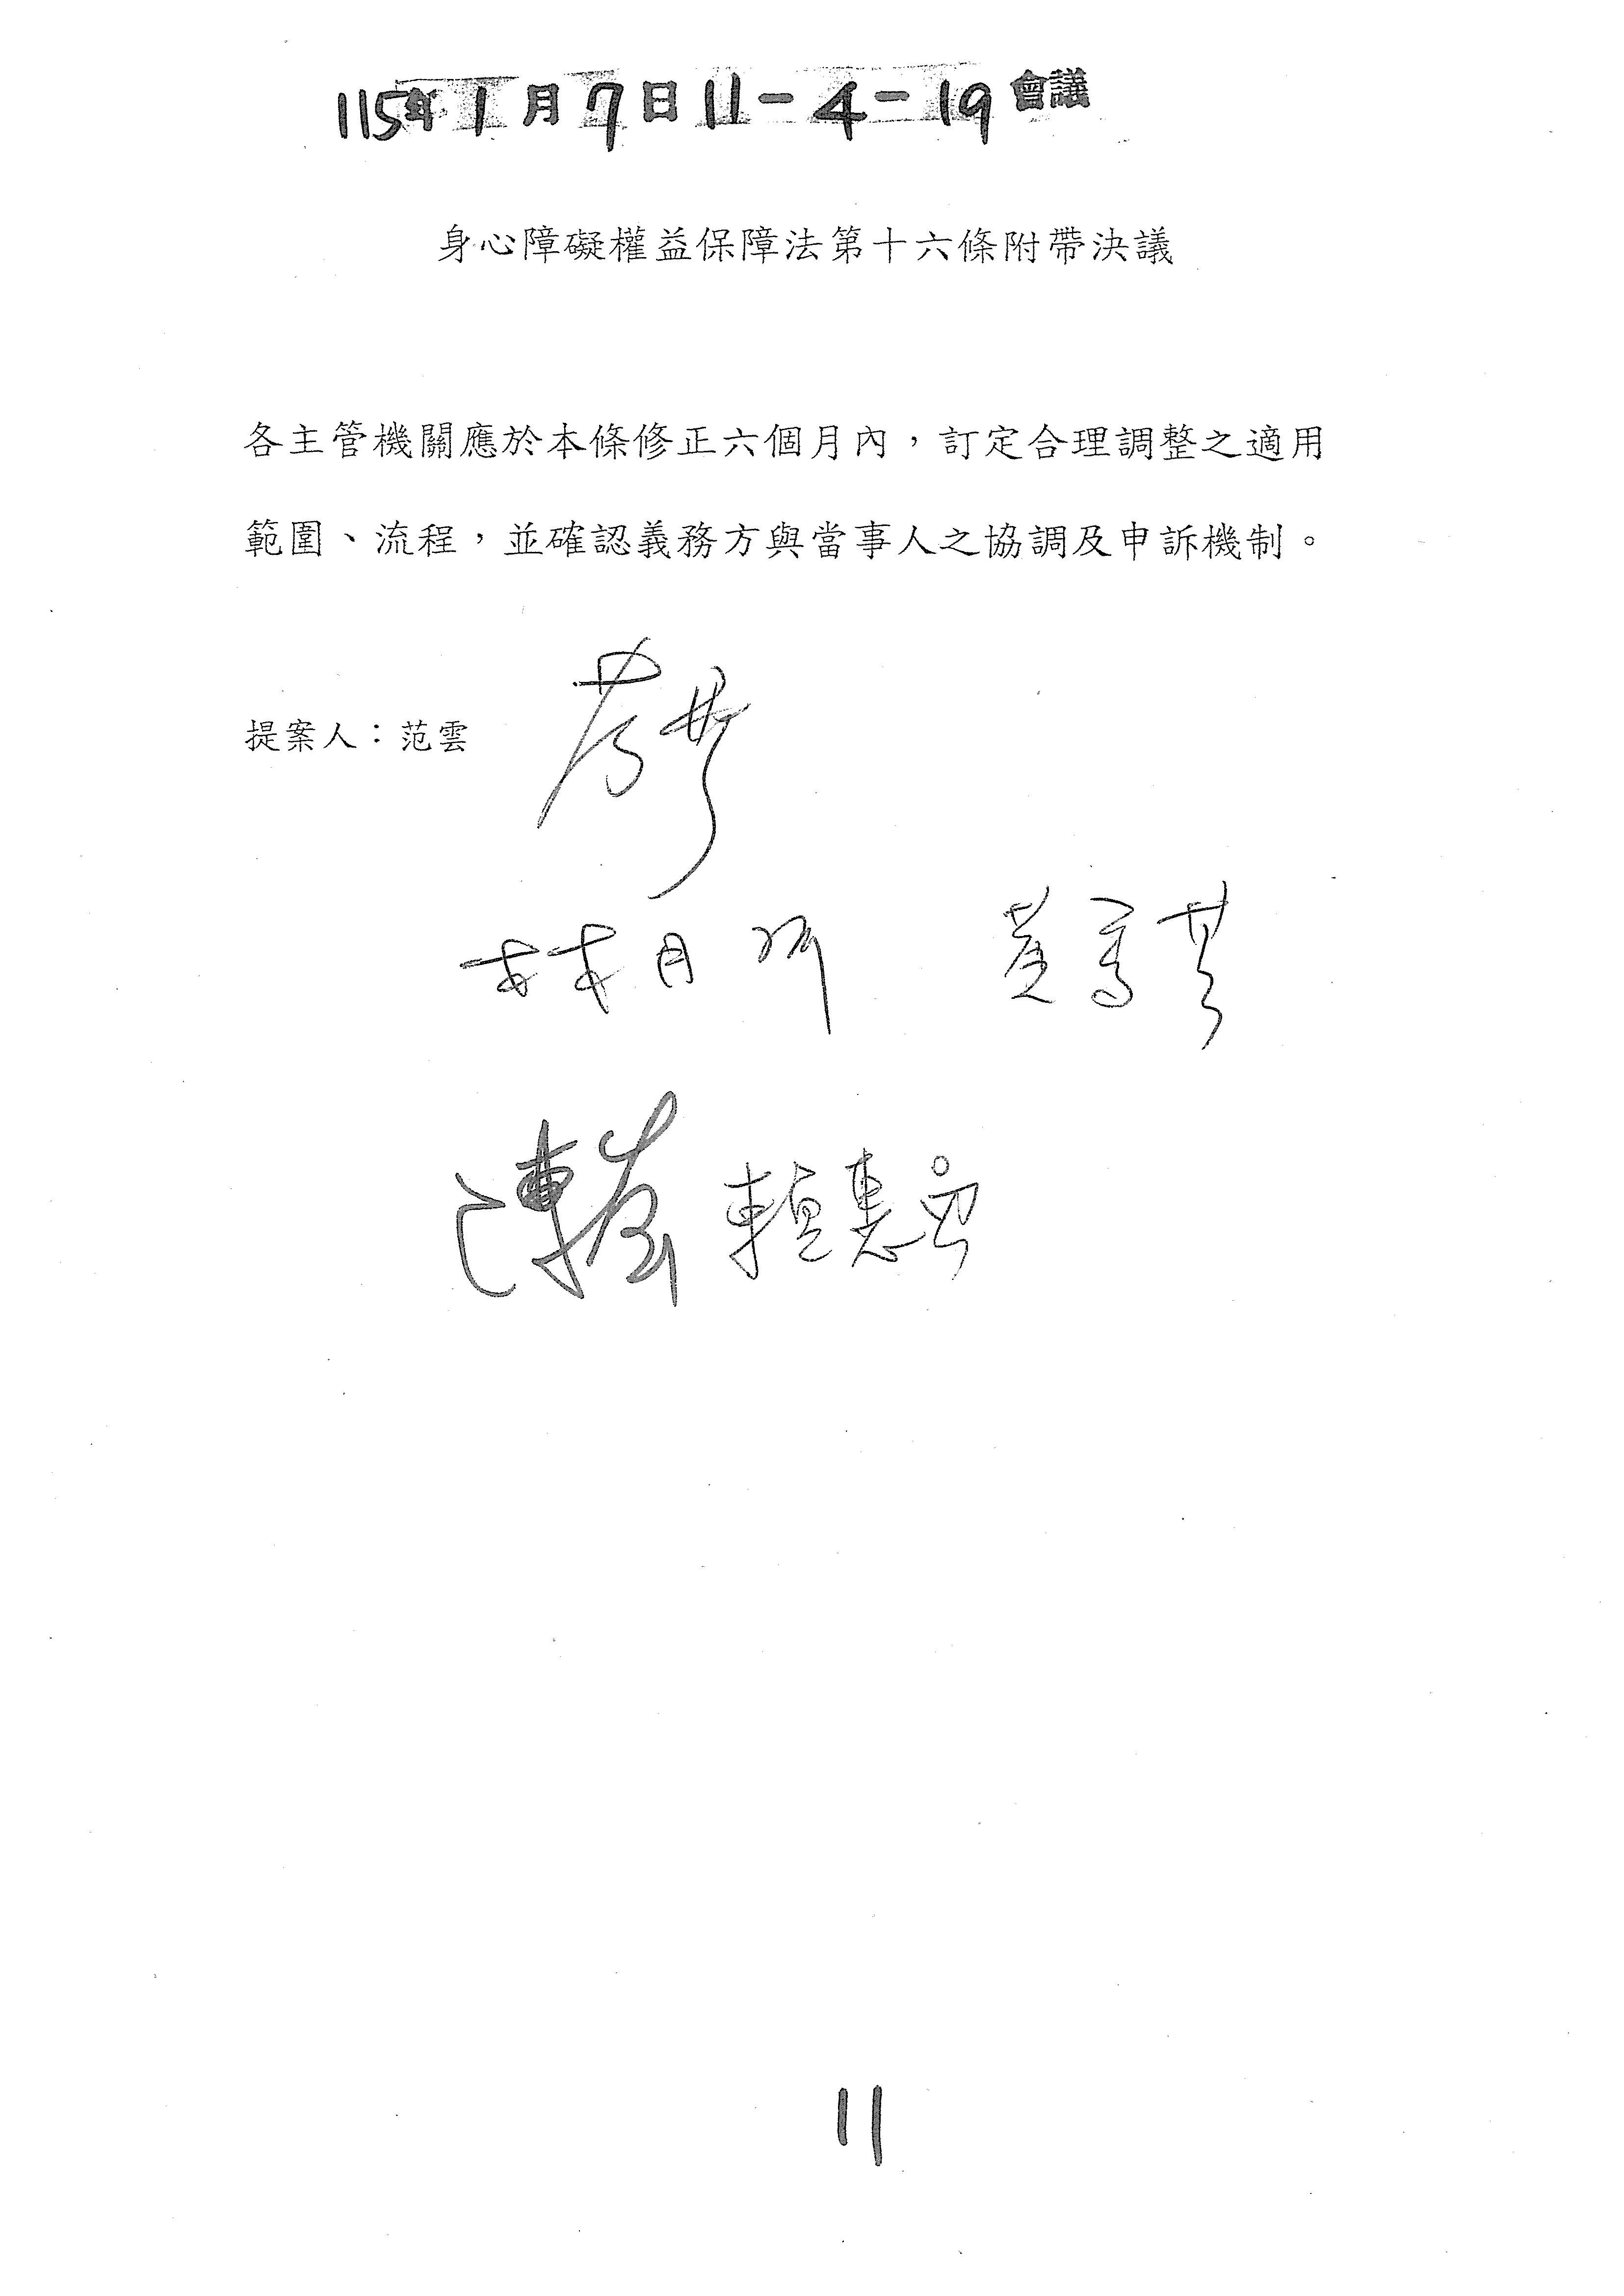 115年1月7日11-4-19會議
身心障礙權益保障法第十六條附帶決議
各主管機關應於本條修正六個月內，訂定合理調整之適用
範圍、流程，並確認義務方與當事人之協調及申訴機制。
提案人：范雲 范雲
林月琴 黃秀芳
陳菁徽 賴惠員
11